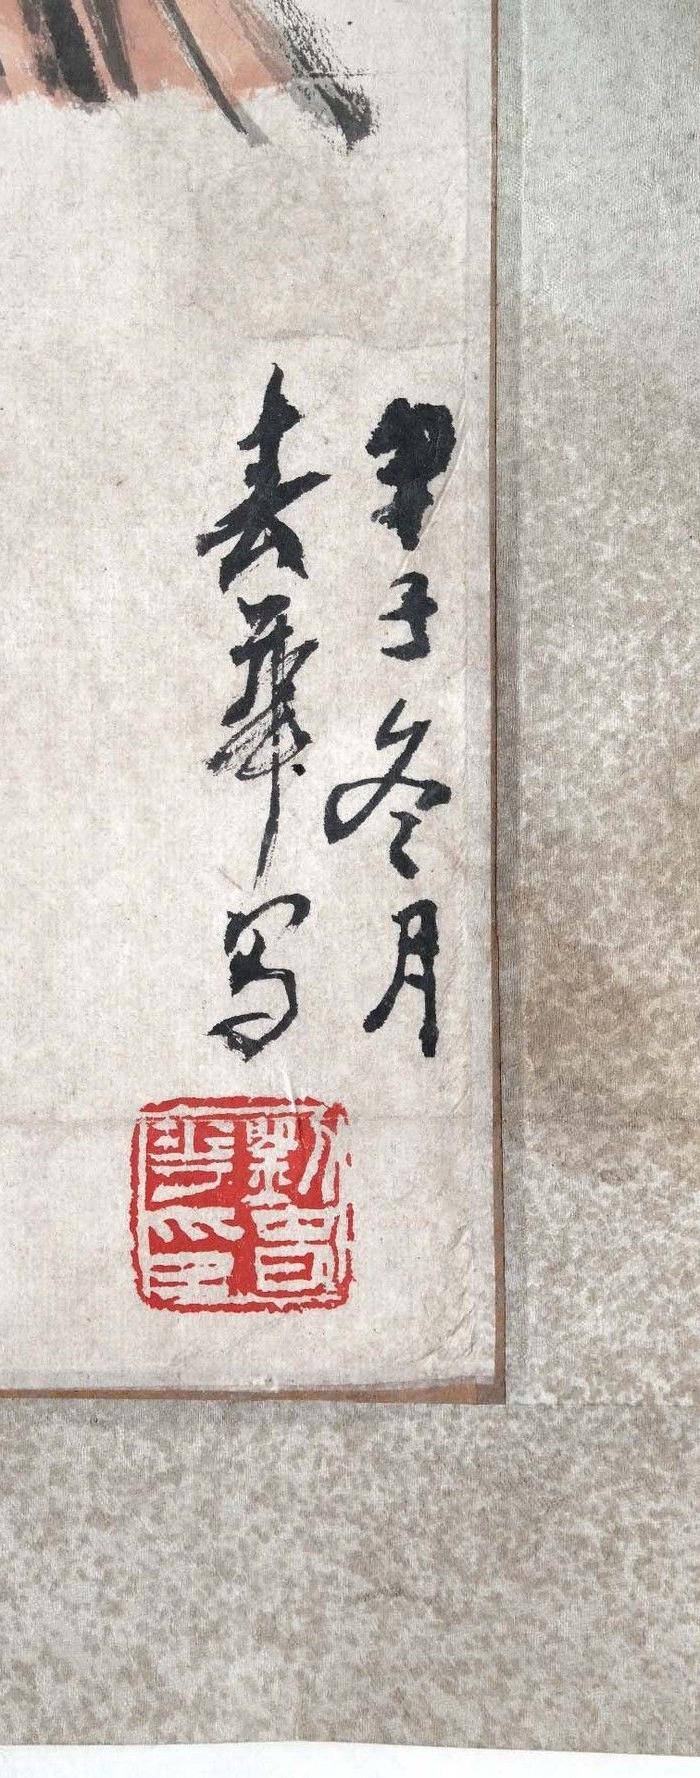 甲子冬月
春華写
劉春華印